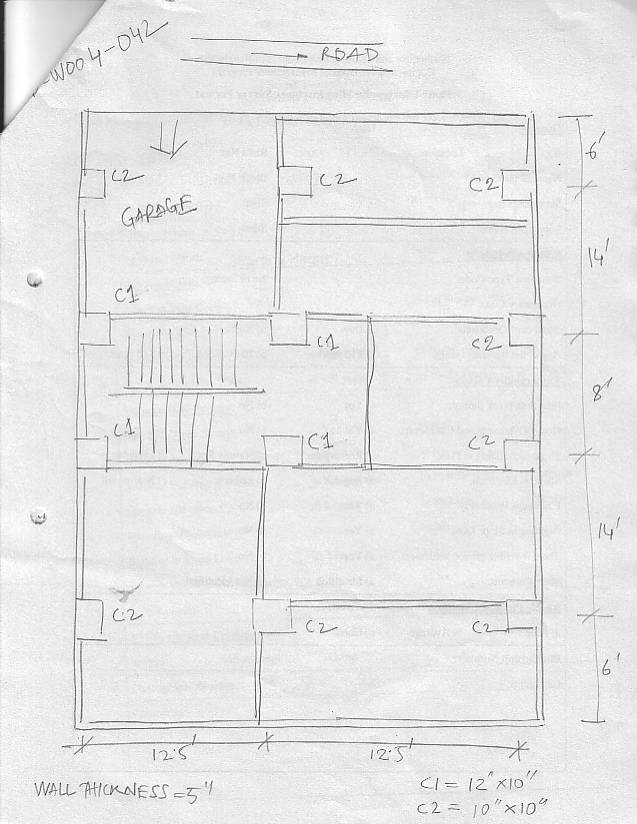 W004-042
→ ROAD
6'
C2
C2
C2
GARAGE
14'
C1
C1
C2
8'
C1
C1
C2
14'
C2
C2
C2
6'
12.5'
12.5'
WALL THICKNESS = 5"
C1 = 12" × 10"
C2 = 10" × 10"